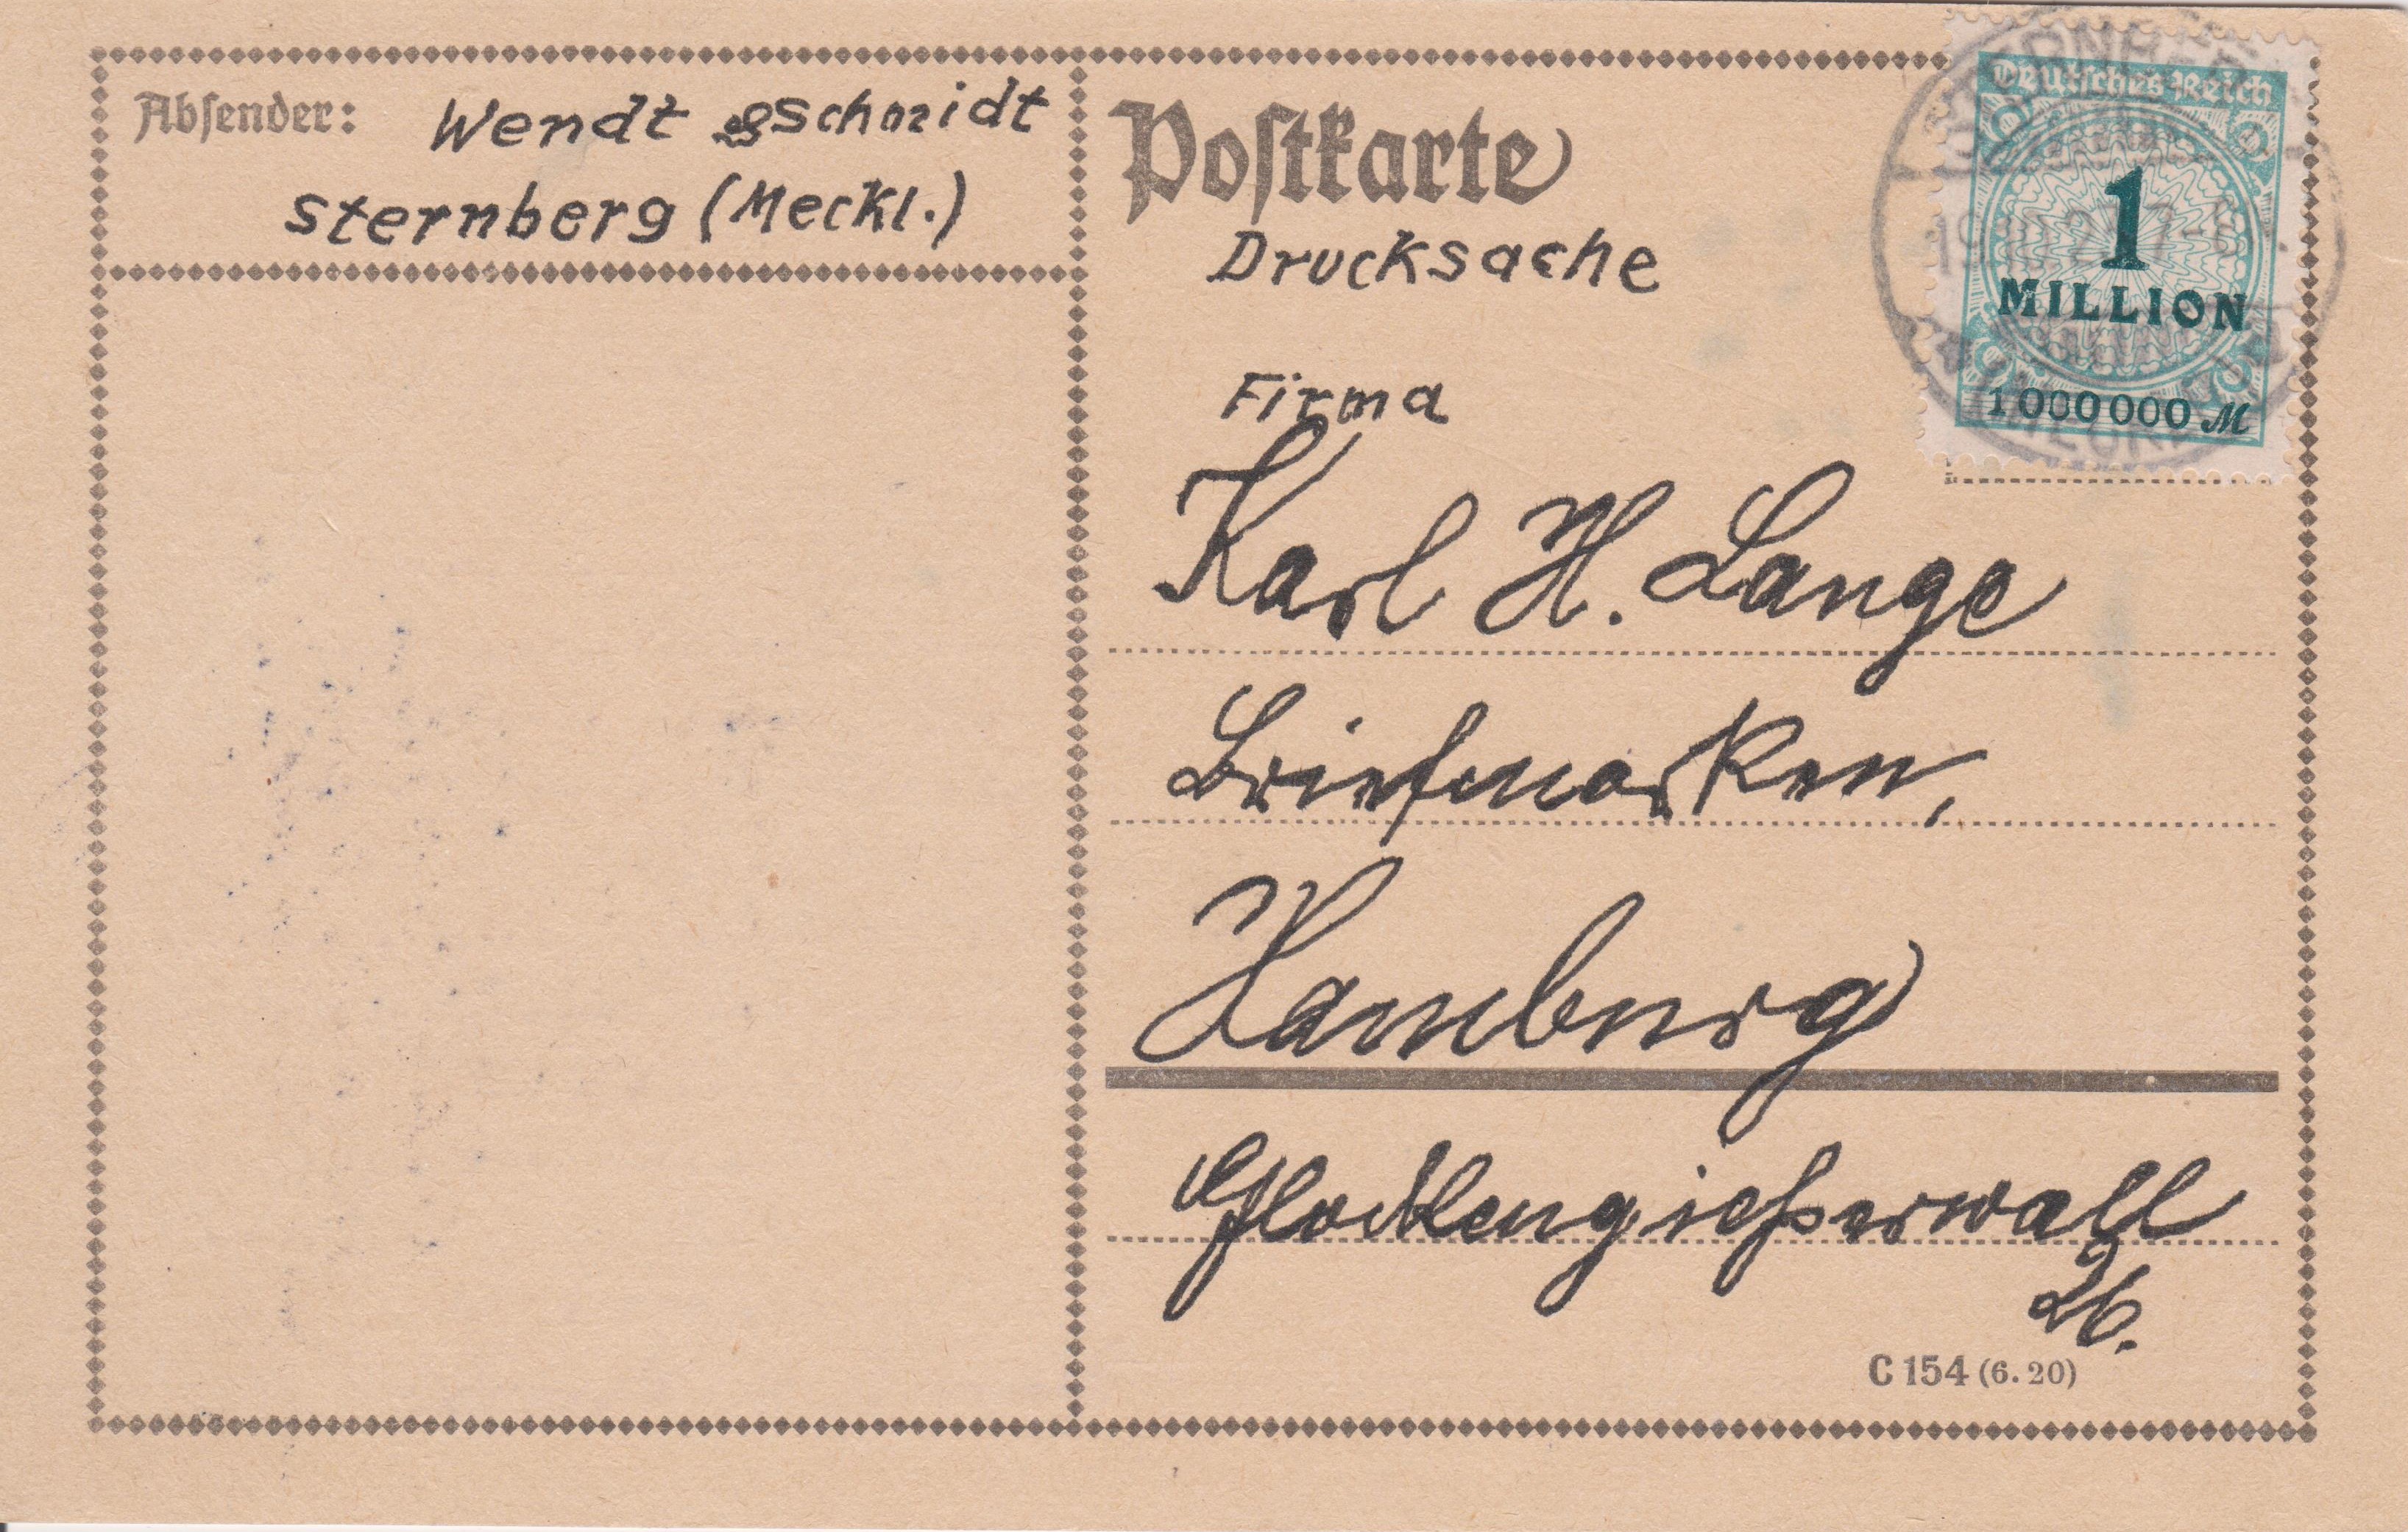 Absender: Wendt & Schmidt
Sternberg (Meckl.)
Postkarte
Drucksache
Deutsches Reich
1
MILLION
1000000 M
Firma
Karl H. Lange
Briefmarken,
Hamburg
Glockengießerwall
26.
C 154 (6.20)